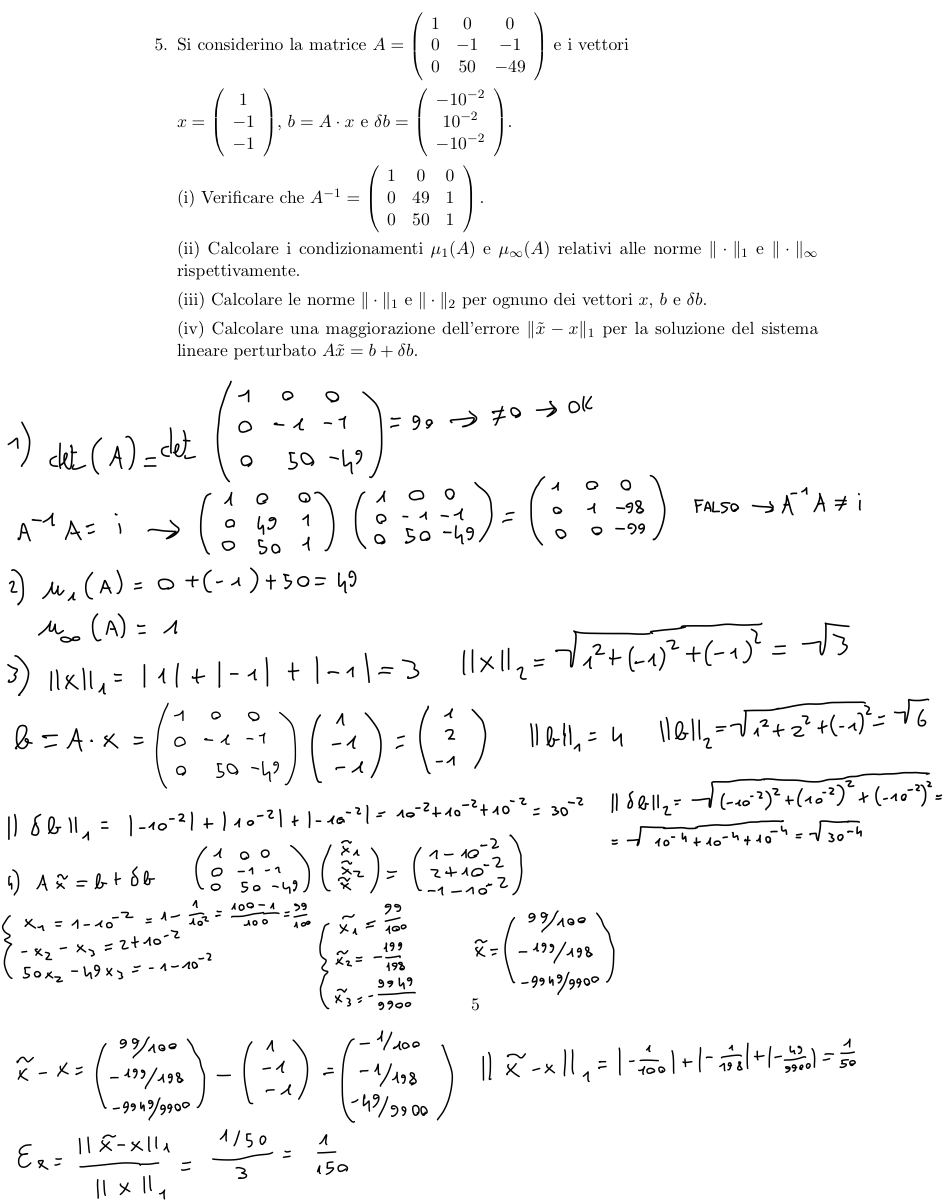 5. Si considerino la matrice A = ( 1 0 0 ; 0 −1 −1 ; 0 50 −49 ) e i vettori
x = ( 1 ; −1 ; −1 ), b = A · x e δb = ( −10⁻² ; 10⁻² ; −10⁻² ).
(i) Verificare che A⁻¹ = ( 1 0 0 ; 0 49 1 ; 0 50 1 ).
(ii) Calcolare i condizionamenti μ₁(A) e μ∞(A) relativi alle norme ‖ · ‖₁ e ‖ · ‖∞
rispettivamente.
(iii) Calcolare le norme ‖ · ‖₁ e ‖ · ‖₂ per ognuno dei vettori x, b e δb.
(iv) Calcolare una maggiorazione dell'errore ‖x̃ − x‖₁ per la soluzione del sistema
lineare perturbato Ax̃ = b + δb.
1) det(A) = det ( 1 0 0 ; 0 -1 -1 ; 0 50 -49 ) = 99 → ≠0 → OK
A⁻¹ A = i → ( 1 0 0 ; 0 49 1 ; 0 50 1 ) ( 1 0 0 ; 0 -1 -1 ; 0 50 -49 ) = ( 1 0 0 ; 0 1 -98 ; 0 0 -99 ) FALSO → A⁻¹A ≠ i
2) μ₁(A) = 0 + (-1) + 50 = 49
μ∞(A) = 1
3) ||x||₁ = |1| + |-1| + |-1| = 3 ||x||₂ = √(1² + (-1)² + (-1)²) = √3
b = A · x = ( 1 0 0 ; 0 -1 -1 ; 0 50 -49 ) ( 1 ; -1 ; -1 ) = ( 1 ; 2 ; -1 ) ||b||₁ = 4 ||b||₂ = √(1² + 2² + (-1)²) = √6
|| δb ||₁ = |-10⁻²| + |10⁻²| + |-10⁻²| = 10⁻² + 10⁻² + 10⁻² = 30⁻² || δb ||₂ = √((-10⁻²)² + (10⁻²)² + (-10⁻²)²) =
= √(10⁻⁴ + 10⁻⁴ + 10⁻⁴) = √30⁻⁴
4) A x̃ = b + δb ( 1 0 0 ; 0 -1 -1 ; 0 50 -49 ) ( x̃₁ ; x̃₂ ; x̃ ) = ( 1-10⁻² ; 2+10⁻² ; -1-10⁻² )
{ x₁ = 1-10⁻² = 1 - 1/10² = (100-1)/100 = 99/100
-x₂ - x₃ = 2+10⁻²
50x₂ - 49x₃ = -1-10⁻²
{ x̃₁ = 99/100
x̃₂ = -199/198
x̃₃ = -9949/9900
x̃ = ( 99/100 ; -199/198 ; -9949/9900 )
5
x̃ - x = ( 99/100 ; -199/198 ; -9949/9900 ) - ( 1 ; -1 ; -1 ) = ( -1/100 ; -1/198 ; -49/9900 ) || x̃ - x ||₁ = |-1/100| + |-1/198| + |-49/9900| = 1/50
εᵣ = || x̃ - x ||₁ / || x ||₁ = (1/50)/3 = 1/150